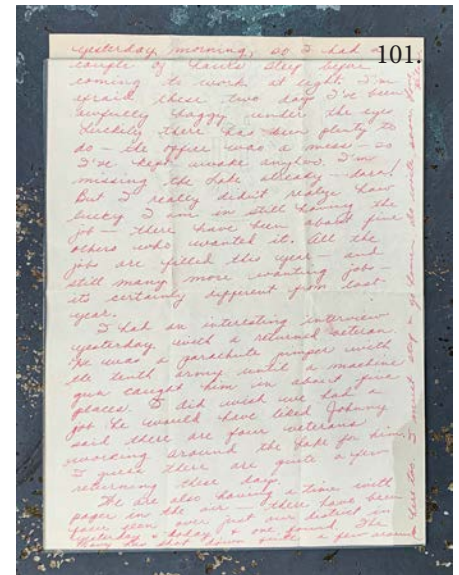 101.
yesterday morning, so I had a
couple of hours sleep before
coming to work at eight. I'm
afraid these two days I've been
awfully baggy under the eyes
Luckily there has been plenty to
do – the office was a mess – so
I've kept awake anyhow. I'm
missing the Lake already – darn!
But I really didn't realize how
lucky I am in still having the
job – there have been about five
others who wanted it. All the
jobs are filled this year – and
still many more wanting jobs –
its certainly different from last
year.
I had an interesting interview
yesterday with a returned veteran.
He was a parachute jumper with
the tenth army until a machine
gun caught him in about five
places. I did wish we had a
job he would have liked Johnny
said there are four veterans
working around the Lake for him.
I guess there are quite a few
returning these days.
We are also having a time with
paper in the air – there have been
four seen over just our district in
yesterday & today & one found. The
Navy has shot down quite a few around
here too. I must